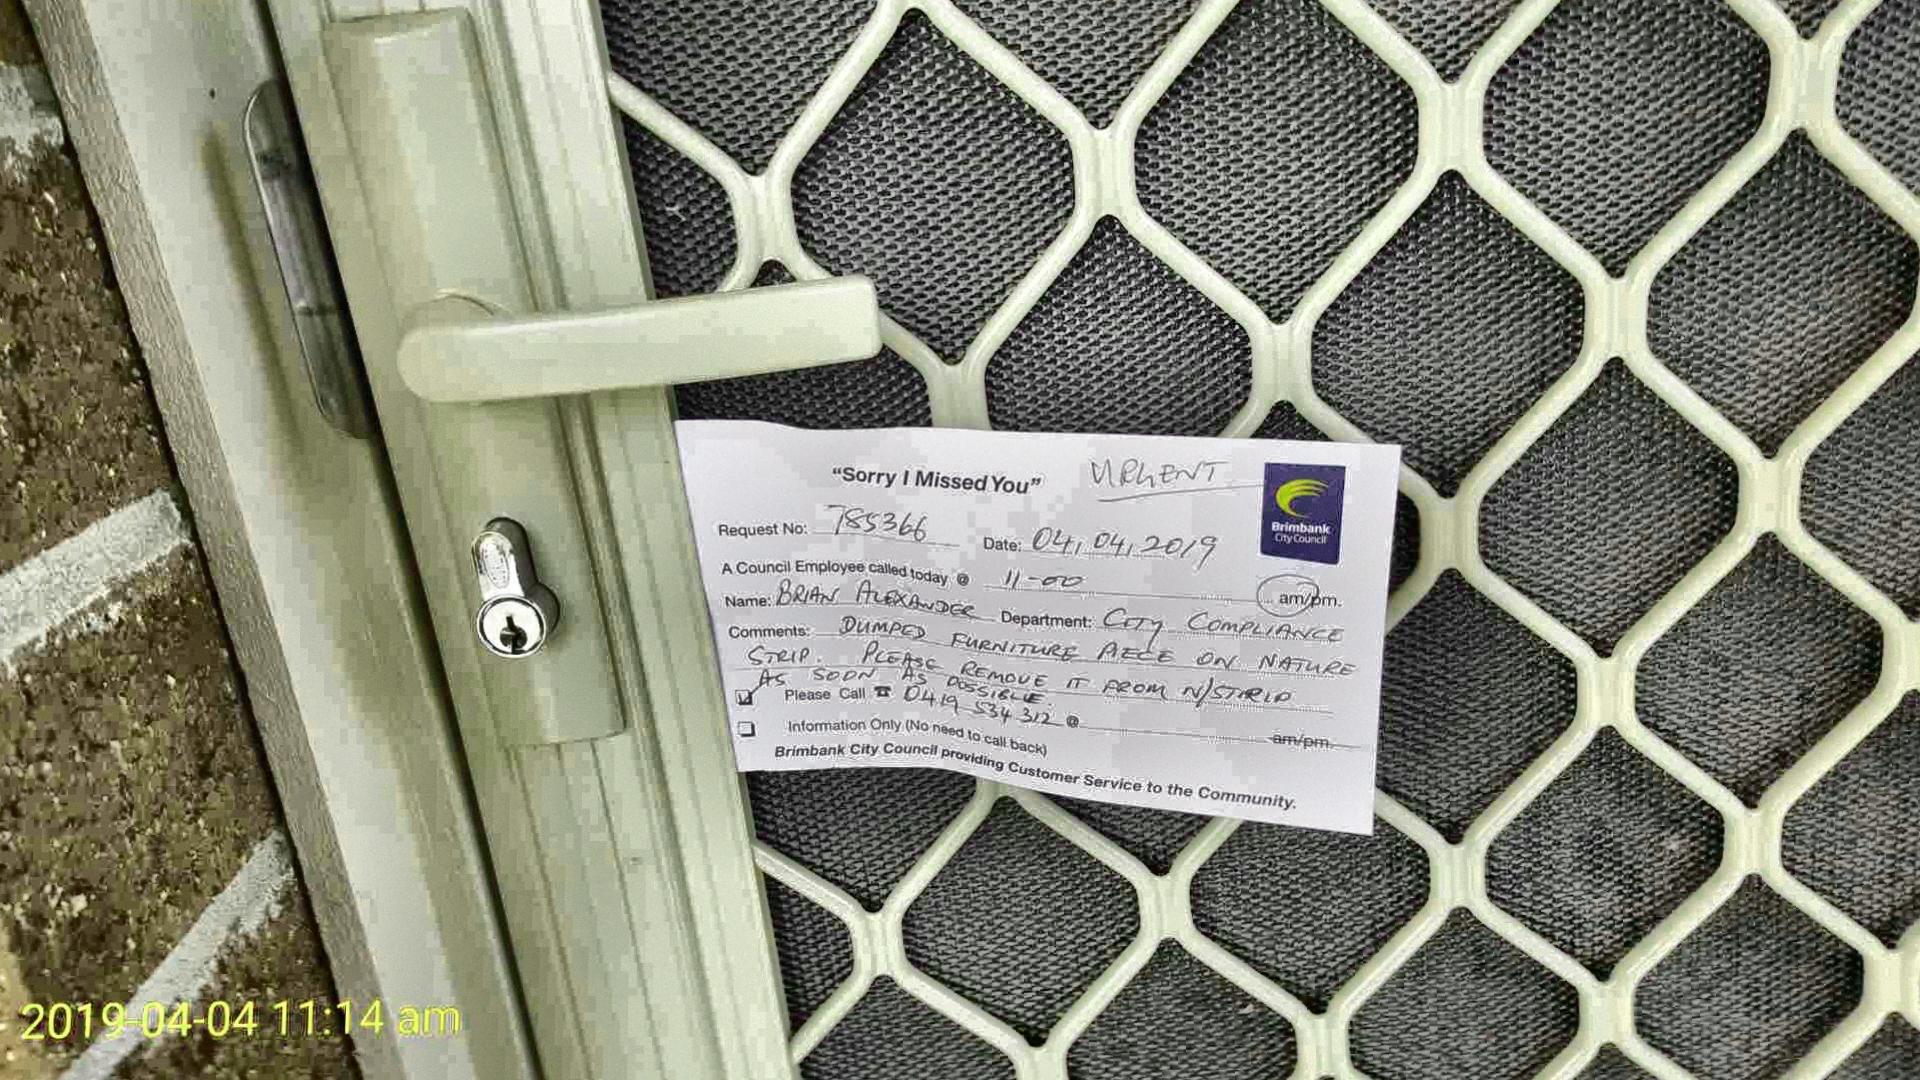 "Sorry I Missed You" URGENT
Brimbank
City Council
Request No: 785366 Date: 04,04,2019
A Council Employee called today @ 11-00 am/pm.
Name: BRIAN ALEXANDER Department: CITY COMPLIANCE
Comments: DUMPED FURNITURE PIECE ON NATURE
STRIP. PLEASE REMOVE IT FROM N/STRIP
AS SOON AS POSSIBLE.
Please Call ☎ 0419 534 312 @ am/pm.
Information Only (No need to call back)
Brimbank City Council providing Customer Service to the Community.
2019-04-04 11:14 am